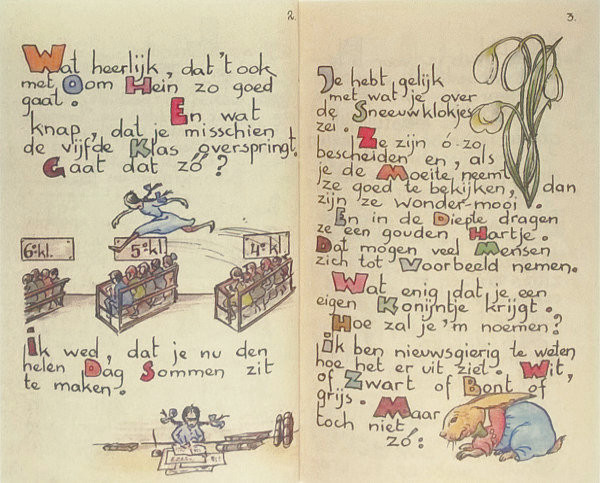 2.
Wat heerlijk, dat 't ook
met Oom Hein zo goed
gaat.
En wat
knap, dat je misschien
de vijfde Klas overspringt.
Gaat dat zó?
6e kl.
5e kl.
4e kl.
ik wed, dat je nu den
helen Dag Sommen zit
te maken.
3.
Je hebt gelijk
met wat je over
de Sneeuwklokjes
zei.
Ze zijn ó zo
bescheiden en, als
je de Moeite neemt
ze goed te bekijken, dan
zijn ze wonder-mooi.
En in de Diepte dragen
ze een gouden Hartje.
Dat mogen veel Mensen
zich tot Voorbeeld nemen.
Wat enig dat je een
eigen Konijntje krijgt.
Hoe zal je 'm noemen?
ik ben nieuwsgierig te weten
hoe het er uit ziet. Wit,
of Zwart of Bont of
grijs. Maar
toch niet
zó: